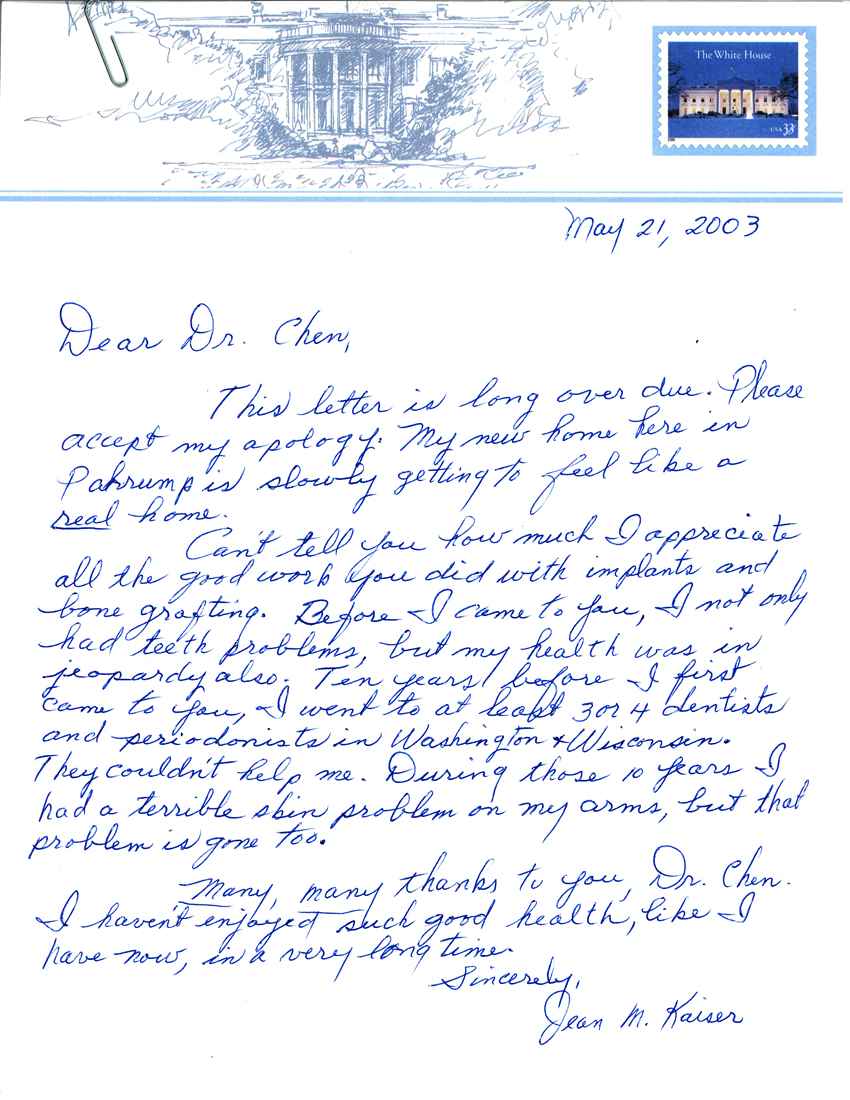 The White House
USA 33
May 21, 2003
Dear Dr. Chen,
This letter is long over due. Please
accept my apology. My new home here in
Pahrump is slowly getting to feel like a
real home.
Can't tell you how much I appreciate
all the good work you did with implants and
bone grafting. Before I came to you, I not only
had teeth problems, but my health was in
jeopardy also. Ten years before I first
came to you, I went to at least 3 or 4 dentists
and periodonists in Washington & Wisconsin.
They couldn't help me. During those 10 years I
had a terrible skin problem on my arms, but that
problem is gone too.
Many, many thanks to you, Dr. Chen.
I haven't enjoyed such good health, like I
have now, in a very long time.
Sincerely,
Jean M. Kaiser